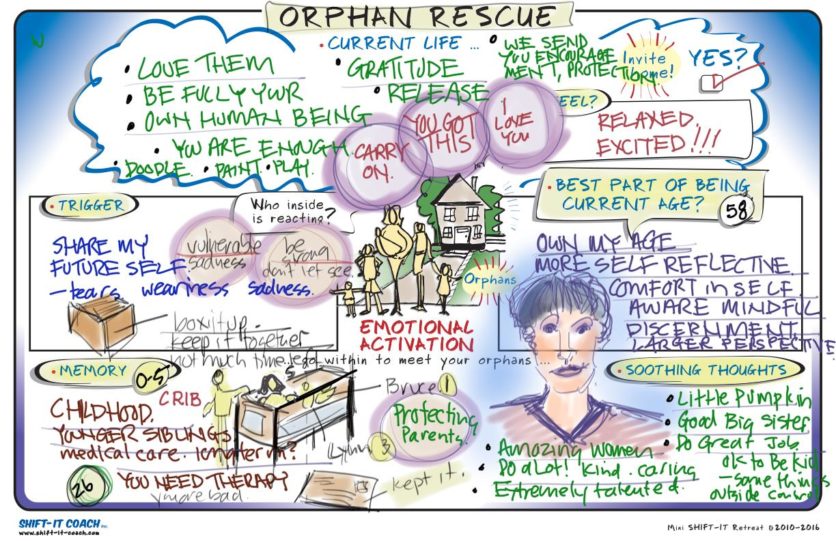 ORPHAN RESCUE
• LOVE THEM
• BE FULLY YOUR
• OWN HUMAN BEING
• YOU ARE ENOUGH
• DOODLE • PAINT • PLAY.
• CURRENT LIFE ...
• GRATITUDE
• RELEASE
• WE SEND
YOU ENCOURAGE
MENT, PROTECTION
Invite
me!
YES?
CARRY
ON.
YOU GOT
THIS
I
LOVE
YOU
EEL?
RELAXED.
EXCITED!!!
• TRIGGER
Who inside
is reacting?
SHARE MY
FUTURE SELF.
– tears weariness sadness.
vulnerable
sadness
be
strong
don't let see.
box it up.
keep it together
not much time left
Orphans
EMOTIONAL
ACTIVATION
go within to meet your orphans ...
• BEST PART OF BEING
CURRENT AGE?
58
OWN MY AGE
MORE SELF REFLECTIVE
COMFORT in SELF
AWARE MINDFUL
DISCERNMENT
LARGER PERSPECTIVE
• MEMORY
0-5
CRIB
CHILDHOOD.
YOUNGER SIBLINGS
medical care.
26
YOU NEED THERAPY
bad.
Bruce 1
Lynn 3
Protecting
Parents.
kept it.
• SOOTHING THOUGHTS
• Little Pumpkin
• Good Big Sister
• Do Great Job
OK to Be Kid
– some things
outside control
• Amazing Women
Do a Lot! Kind. caring
Extremely talented.
SHIFT-IT COACH INC.
www.shift-it-coach.com
Mini SHIFT-IT Retreat ©2010-2016